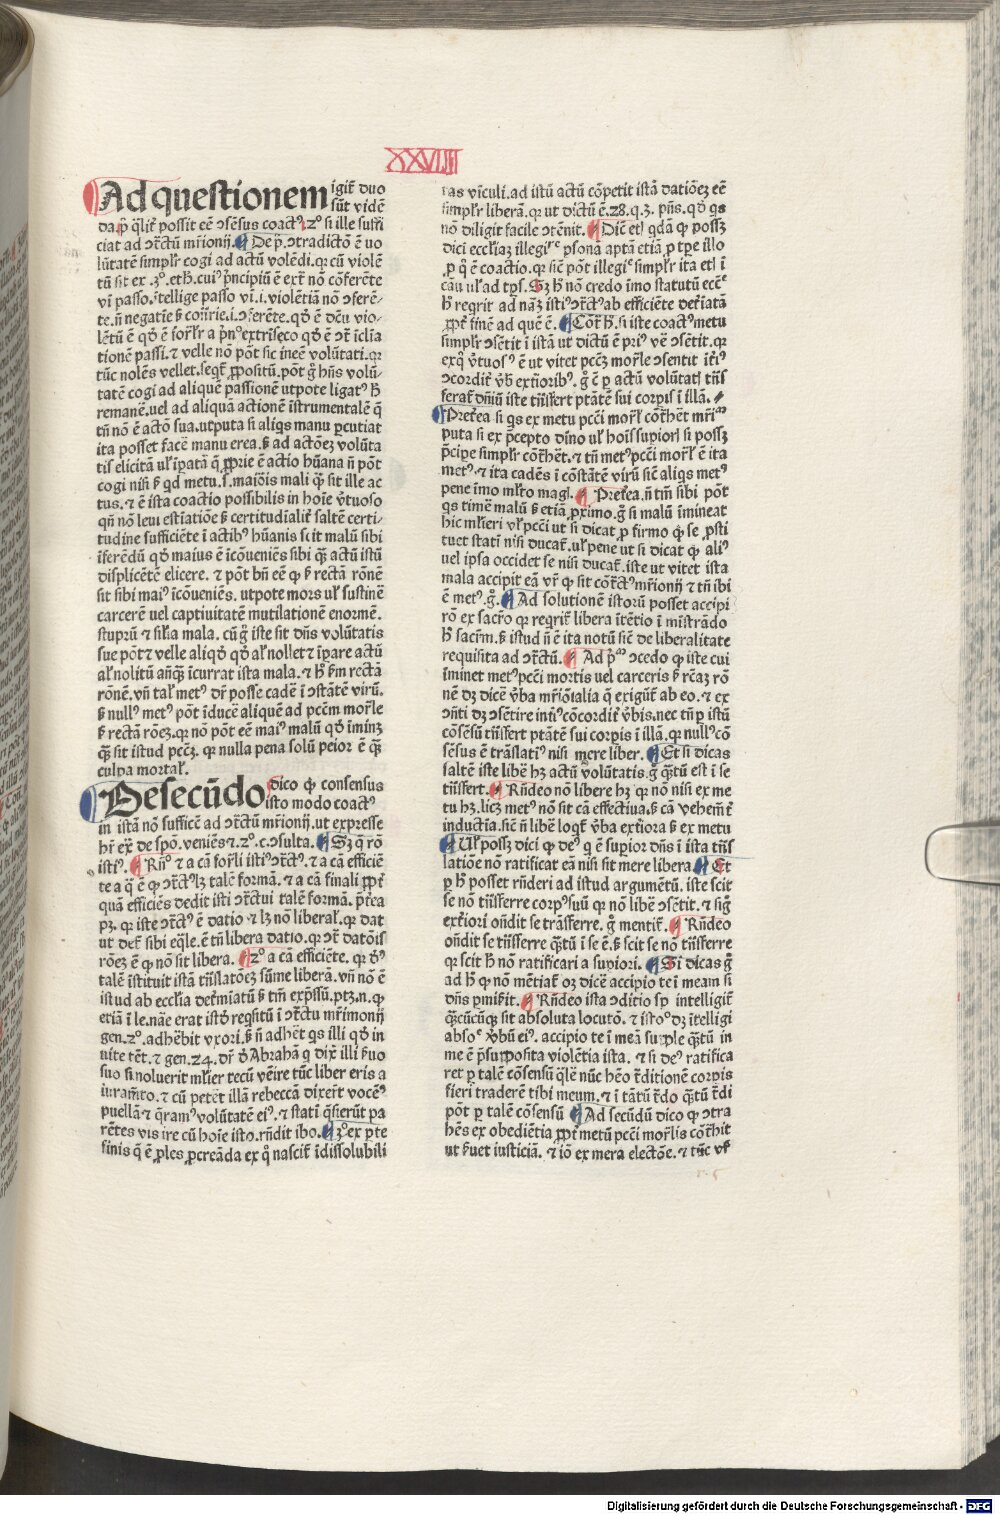 XXVIIII
Ad questionem igit̄ duo
sūt vidē
da p̄ q̄lit̓ possit eē ɔsēsus coactꝰ 2º si ille suffi
ciat ad ɔtᷓctū mr̄ionij. De p̄. ɔtradictō ē uo
lūtatē simplr̓ cogi ad actū volēdi. qꝛ cū violē
tū sit ex .3º. eth. cuiꝰ p̓ncipiū ē ext̓ nō cōferēte
vī passo. ītellige passo vī .i. violētiā nō ɔferē-
te. n̄ negatīe ſꝫ cōtr̓rie .i. ɔ̄ferēte. qd̓ ē dc̄u vio-
tionē passi. ⁊ velle nō pōt sic īneē volūtati. qꝛ
tūc nolēs vellet. seqt̓ ꝓpositū. pōt gͥ hn̄s volū-
tatē cogi ad aliquē passionē utpote ligatꝰ h̓
remanē. uel ad aliquā actionē īstrumentalē q̄
tn̄ nō ē actō sua. utputa si aliqs manu ꝑcutiat
ita posset facē manu erea. ſꝫ ad actōeꝫ volūta
tis elicitā ul̓ īꝑatā q̄ ꝓprie ē actio hūana n̄ pōt
cogi nisi ſꝫ qd metu .s. maiōis mali qͣꝫ sit ille ac
tus. ⁊ ē ista coactio possibilis in hoīe v̓tuoso
qn̄ nō leui estīatiōe ſꝫ certitudīalit̓ saltē certi-
tudine sufficiēte ī actibꝰ hūanis scit malū sibi
īferēdū qd̓ maius ē īcōueniēs sibi qͣꝫ actū istū
displicētē elicere. ⁊ pōt bn̄ eē ꝙ ſꝫ rectā rōnē
sit sibi maiꝰ īcōueniēs. utpote mors ul̓ sustinē
carcerē uel captiuitatē mutilationē enormē.
stuprū ⁊ sil̓ia mala. cū gͦ iste sit dn̄s volūtatis
sue pōt ⁊ velle aliqd̓ qd̓ al̓ nollet ⁊ īꝑare actū
al̓ nolitū anͣqꝫ īcurrat ista mala. ⁊ h̓ ſm rectā
rōnē. vn̄ tal̓ metꝰ dr̓ posse cadē ī ɔstātē virū.
ſꝫ nullꝰ metꝰ pōt īducē aliquē ad pcc̄m mor̓le
ſꝫ rectā rōeꝫ. qꝛ nō pōt eē maiꝰ malū qd̓ īminꝫ
qͣꝫ sit istud pcc̄ꝫ. qꝛ nulla pena solū peior ē qͣꝫ
culpa mortal̓.
De secūdo dico ꝙ consensus
isto modo coactꝰ
in istā nō sufficē ad ɔtᷓctū mr̄ionij. ut expresse
hr̓ ex̓ de spō. veniēs ⁊ .2º. c. ɔsulta. Sꝫ q̄ rō
istiꝰ. Rn̄º ⁊ a cā for̓li istiꝰ ɔtᷓctꝰ. ⁊ a cā efficiē
te a q̄ ē ꝙ ɔtᷓctꝰ hꝫ talē formā. ⁊ a cā finali ꝓpt̓
quā efficiēs dedit isti ɔtᷓctui talē formā. p̄t̓ea
pꝫ. qꝛ iste ɔtᷓctꝰ ē datio ⁊ hꝫ nō liberal̓. qꝛ dat
ut det̓ sibi eq̄le. ē tn̄ libera datio. qꝛ ɔt̓ datōis
rōeꝫ ē ꝙ nō sit libera. 2º a cā efficiēte. qꝛ dꝰ
talē īstituit istā tn̄slatōeꝫ sūme liberā. vn̄ nō ē
istud ab eccl̓ia det̓miatū ſꝫ tm̄ exp̄ssū. ptꝫ .n. ꝙ
etiā ī le. nāe erat istd̓ reqsitū ī ɔtᷓctu mr̄imonij
gen. 2º. adhēbit vxori. ſꝫ n̄ adhēt qs illi qd̓ in
uite tēt. ⁊ gen. 24. dr̓ qd̓ Abrahā q̄ dix̓ illi ẜuo
suo si noluerit ml̓ier tecū vēire tūc liber eris a
iuram̄to. ⁊ cū petēt̓ illā rebeccā dixer̓t vocēꝰ
puellā ⁊ q̄ramꝰ volūtatē eiꝰ. ⁊ stati q̄sierūt pa
rētes vis ire cū hoīe isto. rn̄dit ibo. 3º ex ꝑte
finis q̄ ē ꝓles ꝓcreāda ex q̄ nascit̓ īdissolubili
tas vīculi. ad istū actū cōpetit istā datiōeꝫ eē
simpl̓r liberā. qꝛ ut dictū ē .28. q. 3. pn̄s. qd̓ qs
nō diligit facile ɔtēnit. Dic̄ et̓ qdā ꝙ possꝫ
dici eccl̓iaꝫ illegiſᷓe ꝑsonā aptā etiā ꝓ tꝑe illo
ꝓ q̄ ē coactio. qꝛ sic̄ pōt illegiᷓe simpl̓r ita et̓ ī
cāu ul̓ ad tp̄s. Sꝫ h̓ nō credo īmo statutū ecc̄ᷓe
h̓ regrit ad nāꝫ istiꝰ ɔtᷓctꝰ ab efficiēte det̓iatā
ꝓpt̓ finē ad quē ē. Cōt̓ h̓. si iste coactꝰ metu
simpl̓r ɔsētit ī istā ut dictū ē priꝰ ve̓ ɔsētit. qꝛ
exq̄ v̓tuosꝰ ē ut vitet pcc̄ꝫ mor̓le ɔsentit īt̓iꝰ
ɔcordit̓ v̓b ext̓ioribꝰ. gͦ ē ꝑ actū volūtatꝭ tn̄s
ferat̓ dn̄iū iste tn̄sfert ptātē sui corpīs ī illā.
Pret̓ea si qs ex metu pcc̄i mor̓l cōt̓hēt mr̄iᵐ
puta si ex p̄cepto dīno ul̓ hoīs suꝑiorꝭ si possꝫ
p̄cipe simpl̓r cōt̓hēt. ⁊ tn̄ metꝰ pcc̄i mor̓l ē ita
metꝰ. ⁊ ita cadēs ī cōstātē virū sic̄ aliqs metꝰ
pene īmo ml̓to magꝭ. Pret̓ea. n̄ tm̄ sibi pōt
qs timē malū ſꝫ etiā ꝓximo. gͦ si malū īmineat
hic ml̓ieri ul̓ pcc̄i ut si dicat ꝓ firmo ꝙ se ꝓsti
tuet statī nisi ducat̓. ul̓ pene ut si dicat ꝙ aliꝰ
uel ipsa occidet se nisi ducat̓. iste ut vitet ista
mala accipit eā vt̓ ꝙ sit cōtᷓctꝰ mr̄ionij ⁊ tn̄ ibi
ē metꝰ. gͦ. Ad solutionē istorū posset accipi
rō ex sacr̄o qꝛ reqrit̓ libera ītētio ī mīstrādo
h̓ sacr̄m. ſꝫ istud n̄ ē ita notū sic̄ de liberalitate
requisita ad ɔtᷓctū. Ad p̄ᵐ ɔcedo ꝙ iste cui
īminet metꝰ pcc̄i mortis uel carceris ſꝫ rc̄aꝫ rō
nē dꝫ dicē v̓ba mr̄iōnialia q̄ exigūt̓ ab eo. ⁊ ex
ɔn̄ti dꝫ ɔsētire intiꝰ cōcordit̓ v̓bis. nec tn̄ ꝑ istū
cōsēsū tn̄sfert ptātē sui corpīs ī illā. qꝛ nullꝰ cō
sēsus ē trāslatiꝰ nisi mere liber. Et si dicas
saltē iste libē hꝫ actū volūtatis. gͦ qͣꝫtū est ī se
tn̄sfert. Rn̄deo nō libere hꝫ qꝛ nō nisi ex me
tu hꝫ. licꝫ metꝰ nō sit cā effectiua. ſꝫ cā vehem̄t̓
inductīa. sic̄ n̄ libē loqt̓ v̓ba ext̓iora ſꝫ ex metu
Ul̓ possꝫ dici ꝙ deꝰ q̄ ē suꝑior dn̄s ī ista tn̄s
latiōe nō ratificat eā nisi sit mere libera. Et
ꝑ h̓ posset rn̄deri ad istud argumētū. iste scit
se nō tn̄sferre corpꝰ suū qꝛ nō libē ɔsētit. ⁊ sig̓
ext̓iori ondit se trāsferre. gͦ mentit̓. Rn̄deo
ondit se tn̄sferre qͣꝫtū ī se ē. ſꝫ scit se nō tn̄sferre
qꝛ scit h̓ nō ratificari a suꝑiori. Si dicas gͦ
ad h̓ ꝙ nō mētiat̓ oꝫ dicē accipio te ī meam si
dn̄s ꝑmiſit. Rn̄deo ista ɔditio sꝑ intelligit̓
qͣꝫcūcūqꝫ sit absoluta locutō. ⁊ isto dꝫ ītelligi
accipio te ī meā supple qͣꝫtū in
me ē p̄supposita violētia ista. ⁊ si deꝰ ratifica
ret ꝑ talē cōsensū q̄lē nūc hēo t̓ditionē corpis
fieri traderē tibi meum. ⁊ ī tātū t̓do qͣꝫtū t̓di
pōt ꝑ talē cōsensū Ad secūdū dico ꝙ ɔtra
hēs ex obediētia ꝓpt̓ metū pcc̄i mor̓lis cōt̓hit
ut ẜuet iusticiā. ⁊ iō ex mera electōe. ⁊ tūc ul̓
Digitalisierung gefördert durch die Deutsche Forschungsgemeinschaft - DFG